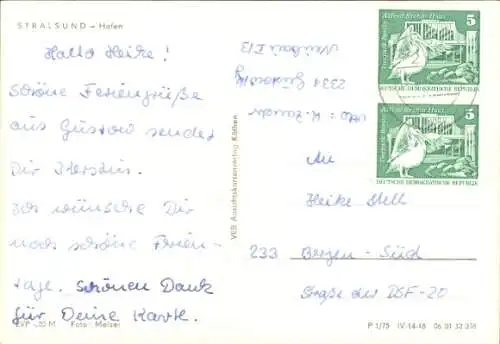 STRALSUND – Hafen
Hallo Heike!
schöne Feriengrüße
aus Gustow sendet
Dir
Ich wünsche Dir
noch schöne Ferien-
tage. Schönen Dank
für Deine Karte.
EVP -,20 M Foto: Melzer
VEB Ansichtskartenverlag Köthen
Abs.: K.
2331 Gustow
Neubau
An
Heike
233 Bergen-Süd
Straße der DSF-20
Alfred Brehm Haus
Tierpark Berlin
5
DEUTSCHE DEMOKRATISCHE REPUBLIK
Alfred Brehm Haus
Tierpark Berlin
5
DEUTSCHE DEMOKRATISCHE REPUBLIK
P 1/75 IV-14-48 06 01 32 318